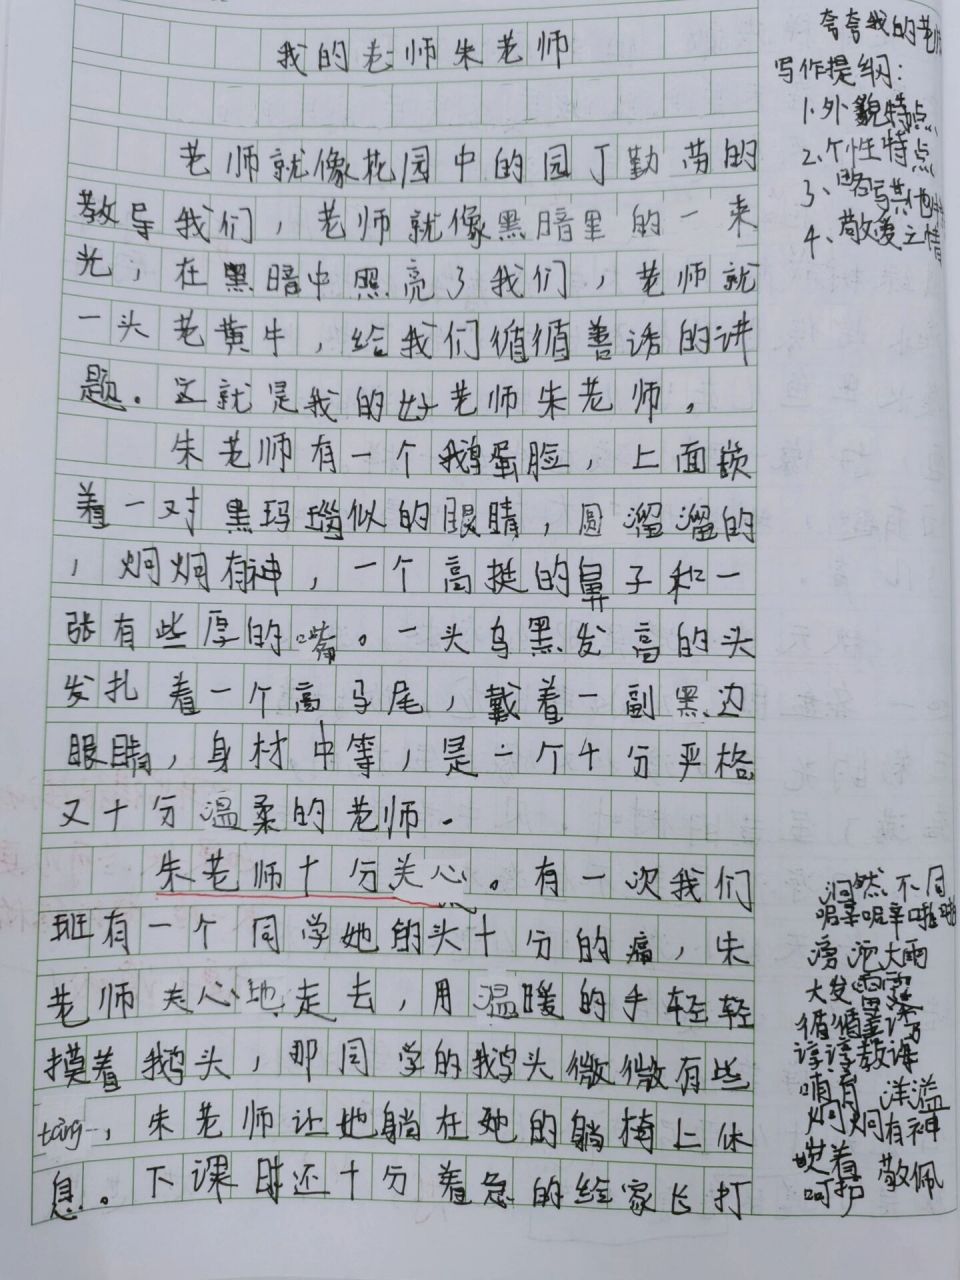 我的老师朱老师
老师就像花园中的园丁勤劳的
教导我们，老师就像黑暗里的一束
光，在黑暗中照亮了我们，老师就
一头老黄牛，给我们循循善诱的讲
题。这就是我的好老师朱老师。
朱老师有一个鹅蛋脸，上面嵌
着一对黑玛瑙似的眼睛，圆溜溜的
，炯炯有神，一个高挺的鼻子和一
张有些厚的嘴。一头乌黑发高的头
发扎着一个高马尾，戴着一副黑边
眼睛，身材中等，是一个十分严格
又十分温柔的老师。
朱老师十分关心。有一次我们
班有一个同学她的头十分的痛，朱
老师关心地走去，用温暖的手轻轻
摸着鹅头，那同学的鹅头微微有些
tang，朱老师让她躺在她的躺椅上休
息。下课时还十分着急的给家长打
夸夸我的老师
写作提纲：
1.外貌特点
2.个性特点
3、略写其他
4、敬爱之情
迥然不同
滂沱大雨
大发雷霆
循循善诱
谆谆教诲
哺育 洋溢
炯炯有神
敬佩
呵护